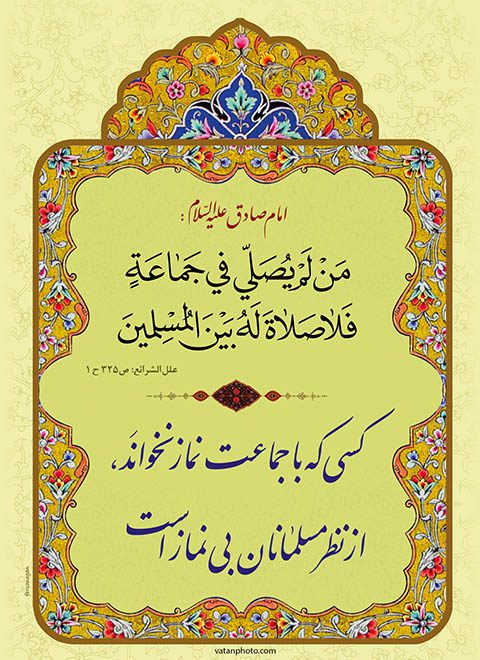 امام صادق علیه السّلام :
مَنْ لَمْ يُصَلّي في جَمَاعَةٍ
فَلاصَلاةَ لَهُ بَيْنَ المُسْلِمينَ
علل الشرائع: ص ۳۲۵ ح ۱
کسی که با جماعت نماز نخواند،
از نظر مسلمانان بی نماز است
vatanphoto.com